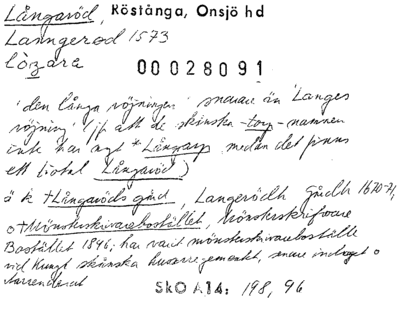 Långaröd, Röstånga, Onsjö hd
Lanngerød 1573
lòzara
00028091
'den långa röjningen' snarare än 'Langes
röjning' (jfr att de skånska -torp-namnen
inte har ngt *Långarp medan det finns
ett tiotal Långaröd)
å k †Långaröds gård, Langerödh gårdh 1670-71,
o †Mönsterskrivarebostället, Mönsterskrifvare
Bostället 1846; har varit mönsterskrivareboställe
vid Kungl skånska husarregementet, snare indraget o
utarrenderat
SkO A14: 198, 96